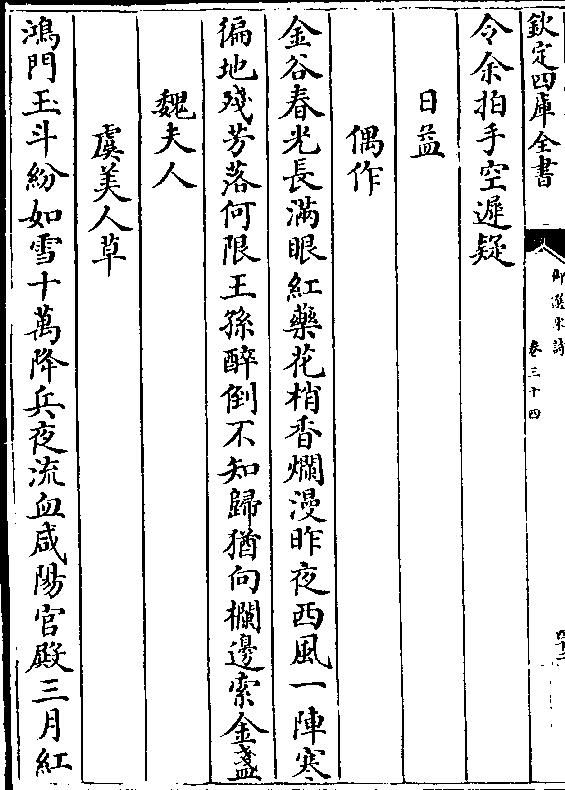 欽定四庫全書
御選宋詩
卷三十四
令余拍手空遲疑
日益
偶作
金谷春光長滿眼紅藥花梢香爛漫昨夜西風一陣寒
徧地殘芳落何限王孫醉倒不知歸猶向欄邊索金盞
魏夫人
虞美人草
鴻門玉斗紛如雪十萬降兵夜流血咸陽官殿三月紅